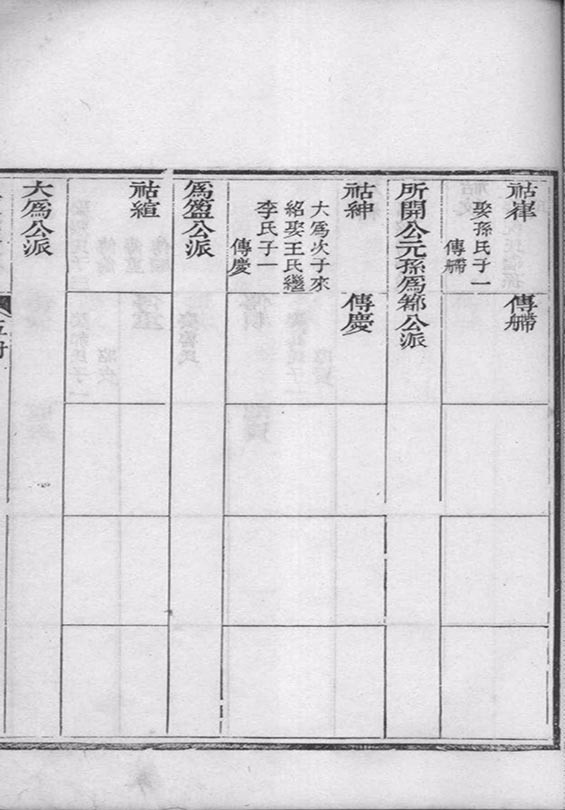 祜嵂
娶孫氏子一
傳髴
傳髴
所開公元孫爲鄒公派
祜紳
大爲次子來
紹娶王氏繼
李氏子一
傳慶
傳慶
爲盤公派
祜縇
大爲公派